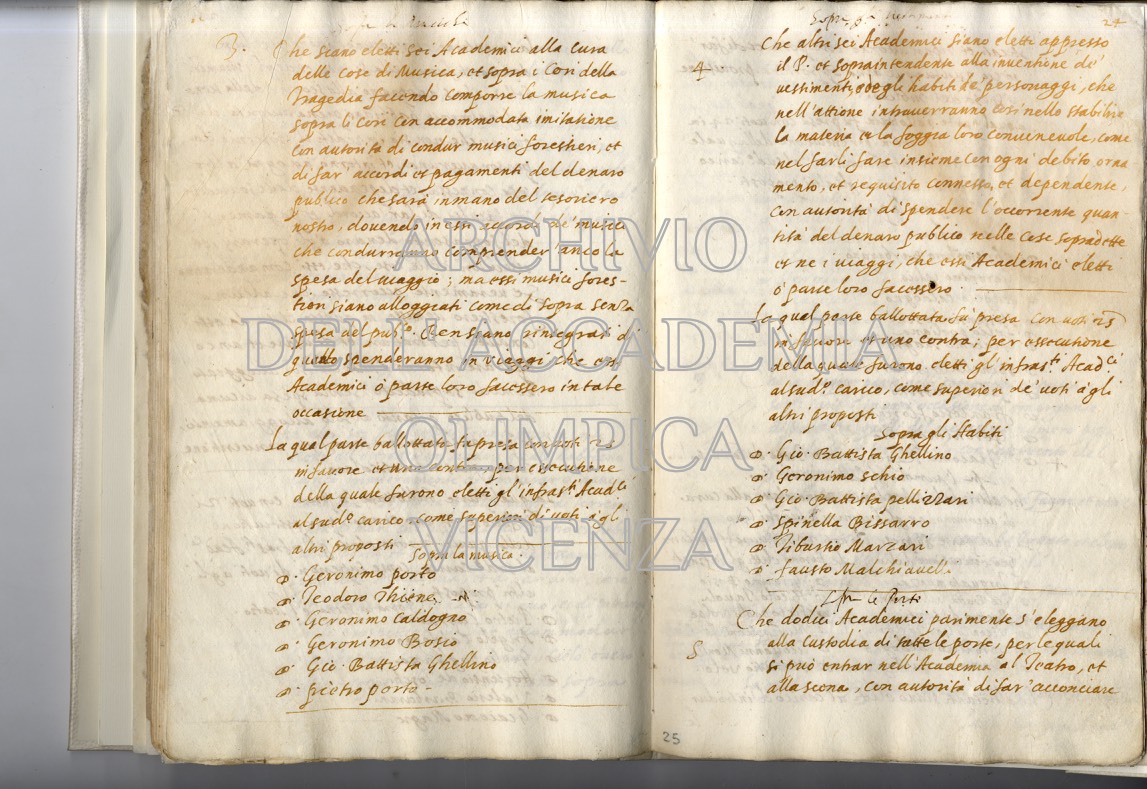 3.
Che siano eletti sei Academici alla cura
delle cose di Musica, et sopra i Cori della
Tragedia facendo comporre la musica
sopra li cori con accommodata imitatione
con autorità di condur musici forestieri, et
di far' accordi et pagamenti del denaro
publico che sarà in mano del tesoriero
nostro, dovendo in essi accordi de' musici
che condurranno comprender' anco la
spesa del viaggio; ma essi musici fores-
tieri siano alloggiati come di sopra senza
spesa del pub.co Et siano rintegrati di
quello spenderanno in viaggi che essi
Academici ò parte loro facessero in tale
occasione
La qual parte ballottata fu presa con voti 25
in favore et uno contra; per essecutione
della quale furono eletti gl'infras.ti Acad.ci
al sud.o carico, come superiori di voti à gli
altri proposti
Sopra la musica.
Geronimo porto
Teodoro Thiene
Geronimo Caldogno
Geronimo Bosio
Gio. Battista Ghellino
pietro porto
24
4
Che altri sei Academici siano eletti appresso
il P. et sopraintendente alla inventione de'
vestimenti, et degli habiti de' personaggi, che
nell'attione intraverranno così nello stabilir
la materia et la foggia loro convenevole, come
nel farli fare insieme con ogni debito orna
mento, et requisito connesso, et dependente,
con autorità di spendere l'occorrente quan-
tità del denaro publico nelle cose sopradette
et ne i viaggi, che essi Academici eletti
ò parte loro facessero
La qual parte ballottata fu presa con voti 25
in favore et uno contra; per essecutione
della quale furono eletti gl'infras.ti Acad.ci
al sud.o carico, come superiori de' voti à gli
altri proposti
Sopra gli Habiti
Gio. Battista Ghellino
Geronimo schio
Gio. Battista pellizzari
Spinella Bissarro
Tiburtio Marzari
fausto Malchiavelli
5
Che dodici Academici parimente s'eleggano
alla custodia di tutte le porte, per le quali
si può entrar nell'Academia al Teatro, et
alla scena, con autorità di far' acconciare
25
ARCHIVIO
DELL'ACCADEMIA
OLIMPICA
VICENZA